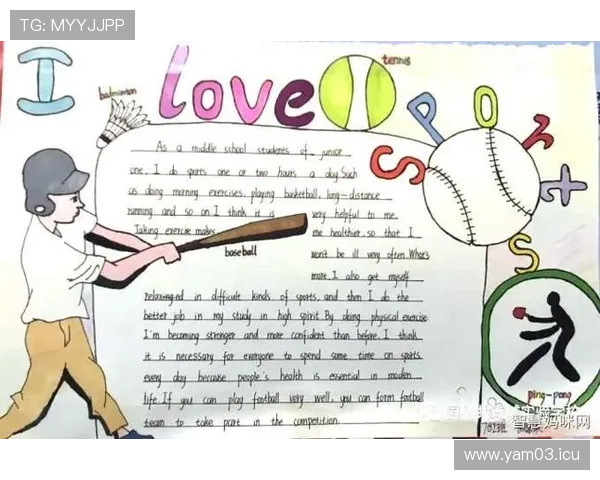 TG: MYYJJPP
I love sports
tennis
badminton
As a middle school students of junior
one. I do sports one or two hours a day. Such
as doing morning exercises, playing basketball, long-distance
running and so on. I think it is very helpful to me.
Taking exercise makes me healthier, so that I
baseball
won't be ill very often. What's
more, I also get myself
relaxinged in difficult kinds of sports, and then I do the
better job in my study in high spirit. By doing physical exercise
I'm becoming stronger and more confident than before. I think
it is necessary for everyone to spend some time on sports
every day because people's health is essential in modern
life. If you can play football very well, you can form football
team to take part in the competition.
ping-pong
智慧妈咪网
www.yam03.icu